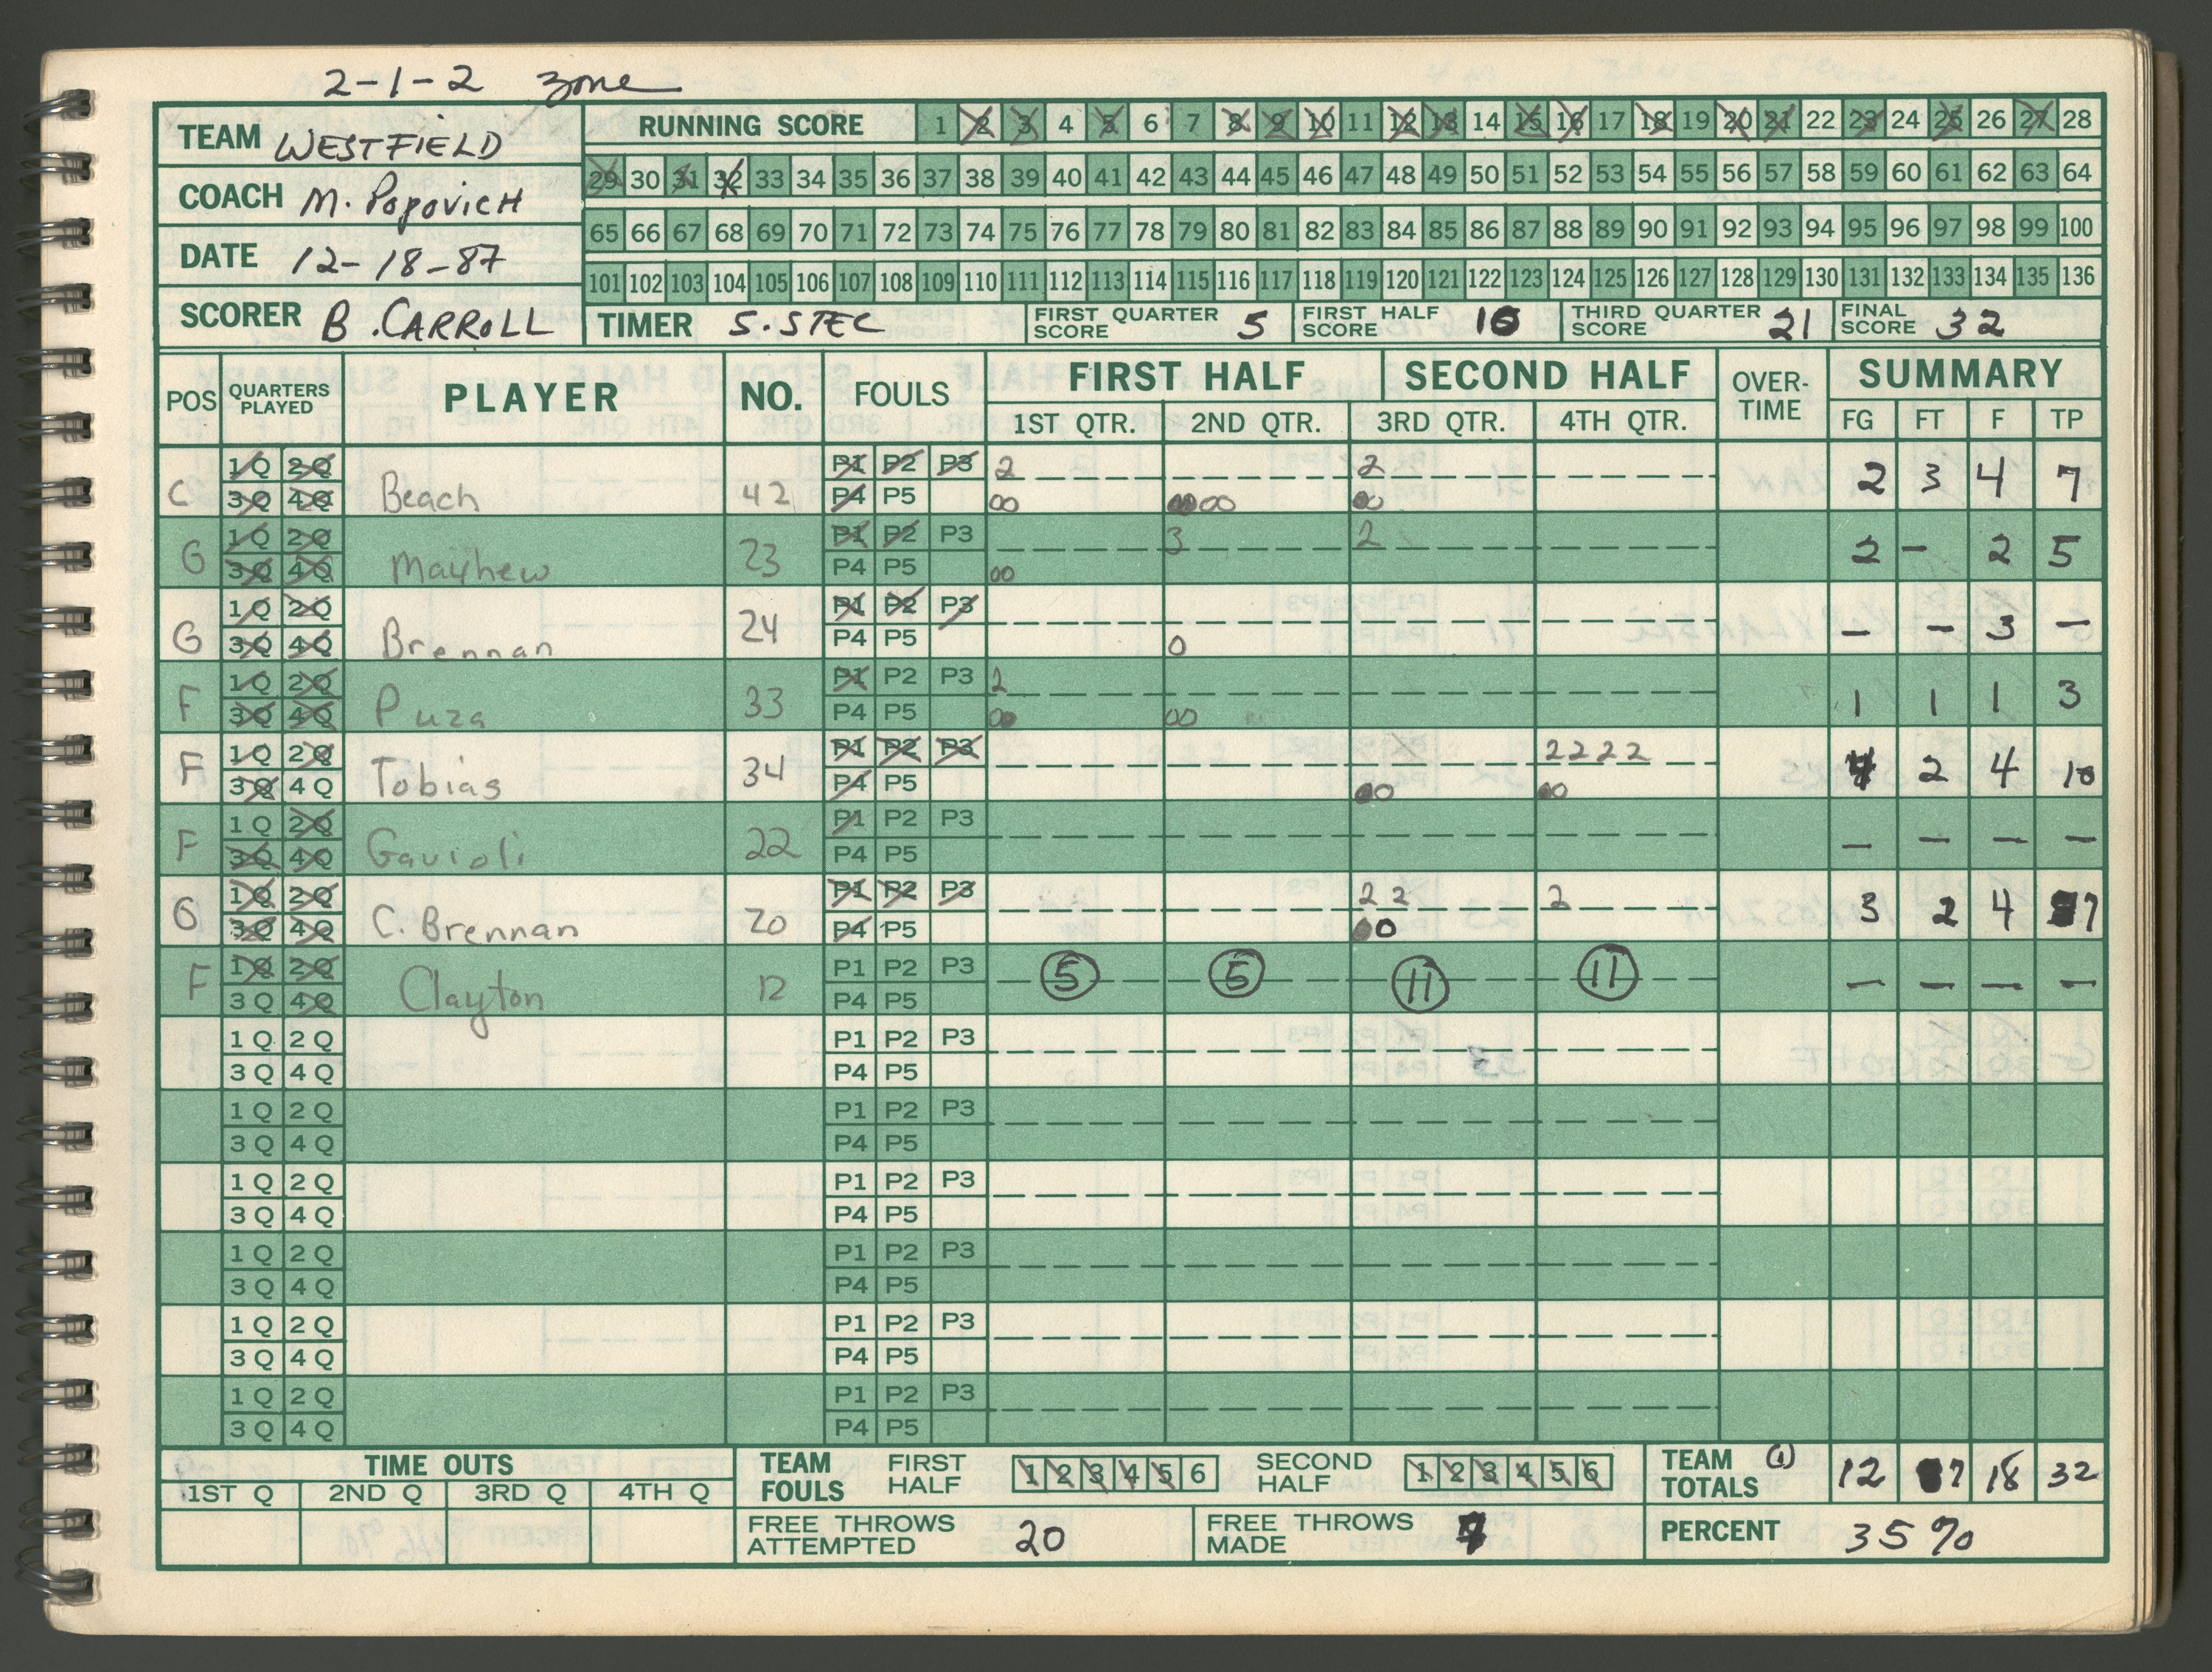 2-1-2 zone
TEAM WESTFIELD
COACH M. POPOVICH
DATE 12-18-87
SCORER B. CARROLL
RUNNING SCORE 1 2 3 4 5 6 7 8 9 10 11 12 13 14 15 16 17 18 19 20 21 22 23 24 25 26 27 28
29 30 31 32 33 34 35 36 37 38 39 40 41 42 43 44 45 46 47 48 49 50 51 52 53 54 55 56 57 58 59 60 61 62 63 64
65 66 67 68 69 70 71 72 73 74 75 76 77 78 79 80 81 82 83 84 85 86 87 88 89 90 91 92 93 94 95 96 97 98 99 100
101 102 103 104 105 106 107 108 109 110 111 112 113 114 115 116 117 118 119 120 121 122 123 124 125 126 127 128 129 130 131 132 133 134 135 136
TIMER S. STEC FIRST QUARTER SCORE 5 FIRST HALF SCORE 10 THIRD QUARTER SCORE 21 FINAL SCORE 32
POS QUARTERS PLAYED PLAYER NO. FOULS FIRST HALF SECOND HALF OVER-TIME SUMMARY
1ST QTR. 2ND QTR. 3RD QTR. 4TH QTR. FG FT F TP
1Q 2Q P1 P2 P3 2 2
C 3Q 4Q Beach 42 P4 P5 00 0000 00 2 3 4 7
1Q 2Q P1 P2 P3 3 2
G 3Q 4Q Mayhew 23 P4 P5 00 2 - 2 5
1Q 2Q P1 P2 P3
G 3Q 4Q Brennan 24 P4 P5 0 - - 3 -
1Q 2Q P1 P2 P3 2
F 3Q 4Q Puza 33 P4 P5 00 00 1 1 1 3
1Q 2Q P1 P2 P3 2 2 2 2
F 3Q 4Q Tobias 34 P4 P5 00 00 4 2 4 10
1Q 2Q P1 P2 P3
F 3Q 4Q Gavioli 22 P4 P5 - - - -
1Q 2Q P1 P2 P3 2 2 2
G 3Q 4Q C. Brennan 20 P4 P5 00 3 2 4 7
1Q 2Q P1 P2 P3 5 5 11 11
F 3Q 4Q Clayton 12 P4 P5 - - - -
1Q 2Q P1 P2 P3
3Q 4Q P4 P5
1Q 2Q P1 P2 P3
3Q 4Q P4 P5
1Q 2Q P1 P2 P3
3Q 4Q P4 P5
1Q 2Q P1 P2 P3
3Q 4Q P4 P5
1Q 2Q P1 P2 P3
3Q 4Q P4 P5
1Q 2Q P1 P2 P3
3Q 4Q P4 P5
TIME OUTS
1ST Q 2ND Q 3RD Q 4TH Q
TEAM FOULS FIRST HALF 1 2 3 4 5 6 SECOND HALF 1 2 3 4 5 6
TEAM TOTALS 1 12 7 18 32
FREE THROWS ATTEMPTED 20 FREE THROWS MADE 7 PERCENT 35%